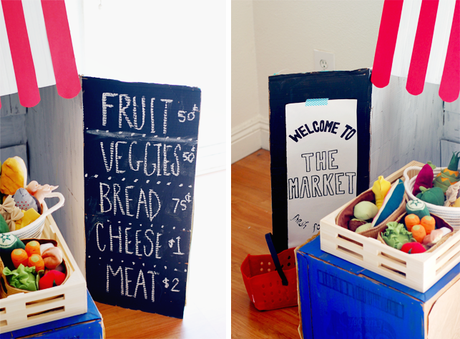 FRUIT 50¢
VEGGIES 50¢
BREAD 75¢
CHEESE $1
MEAT $2
WELCOME TO
THE
MARKET